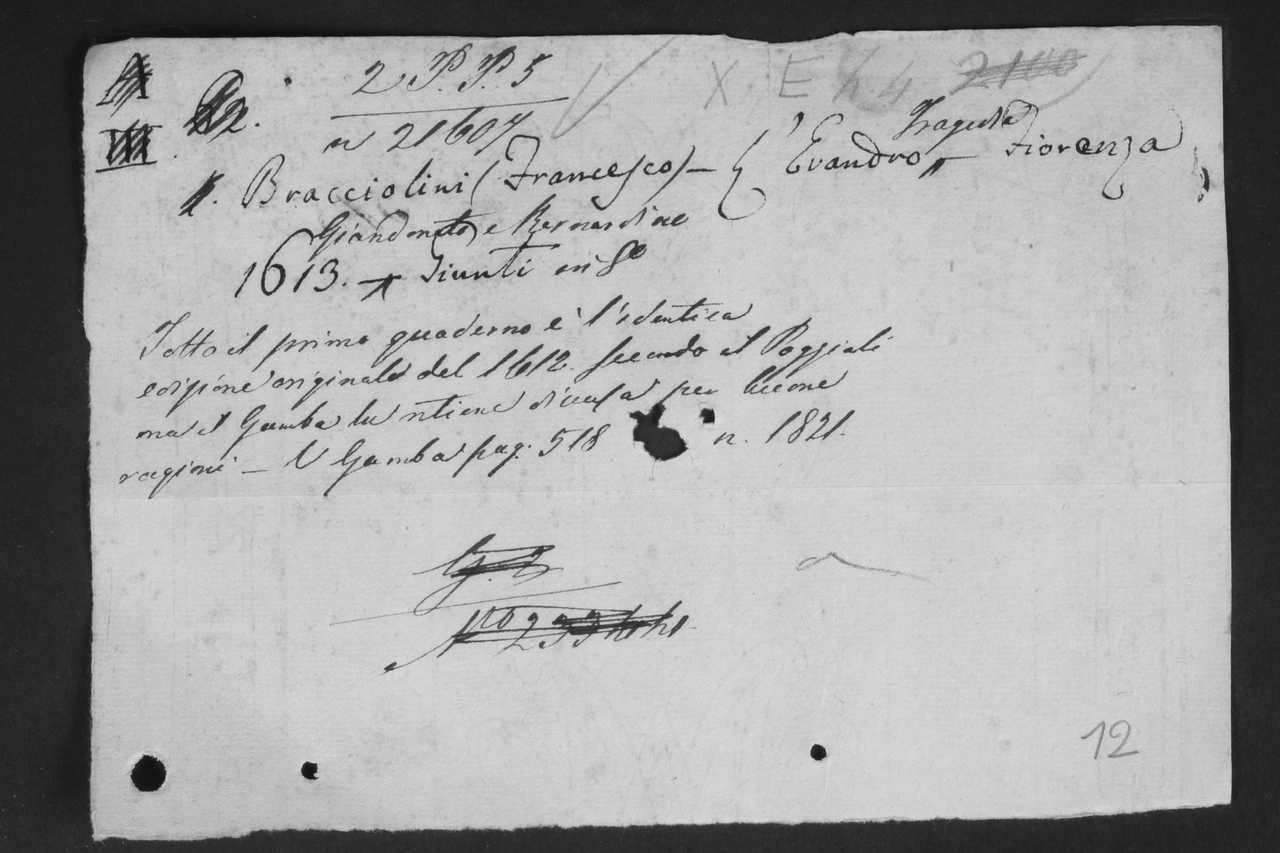 2 P. P. 5
X E 44 2100
n 21607
Tragedia
Bracciolini (Francesco) – L'Evandro – Fiorenza
Giandonato e Bernardino
1613. – Giunti in 8º
Sotto il primo quaderno è l'identica
edizione originale del 1612. secondo il Poggiali
ma il Gamba la ritiene diversa per buone
ragioni – V Gamba pag. 518 n. 1821.
12